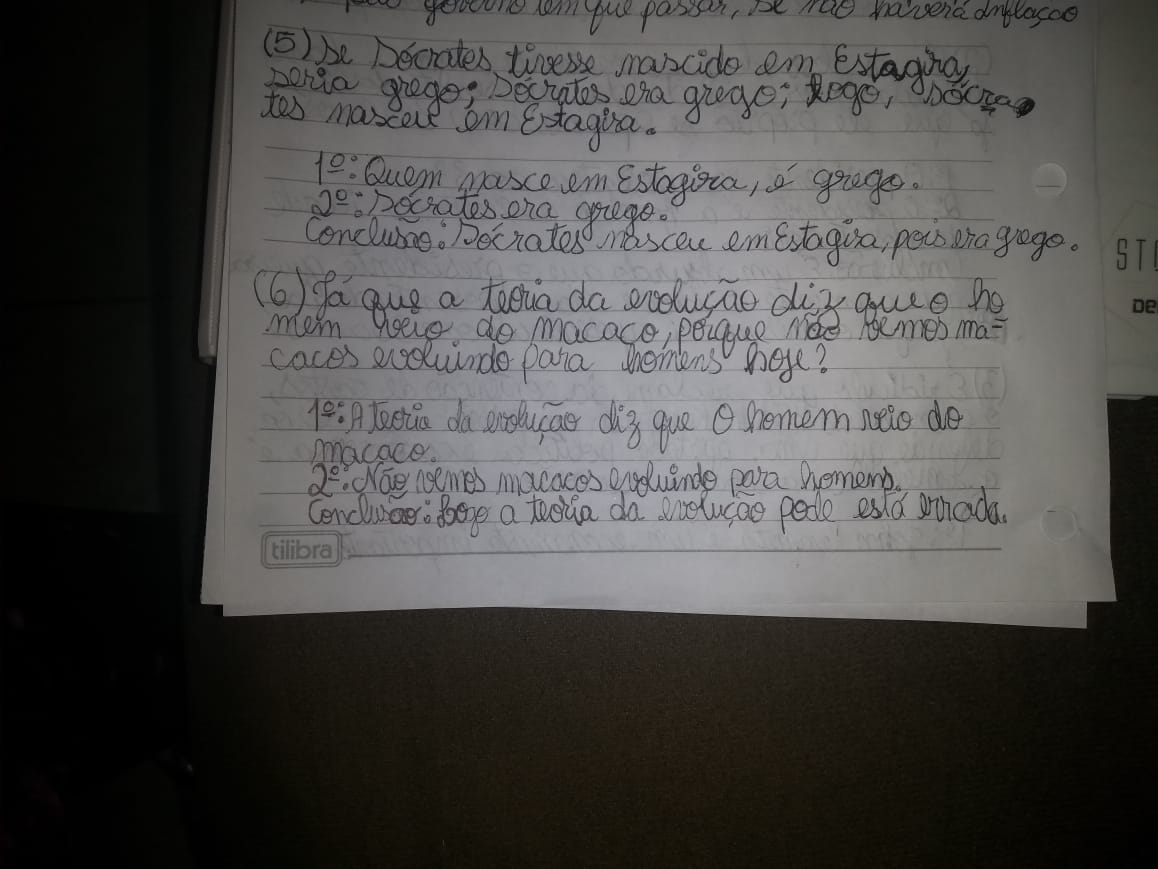 governo tem que passar, se não haverá inflação
(5) Se Sócrates tivesse nascido em Estagira,
seria grego; Sócrates era grego; logo, Sócra
tes nasceu em Estagira.
1º: Quem nasce em Estagira, é grego.
2º: Sócrates era grego.
Conclusão: Sócrates nasceu em Estagira, pois era grego.
(6) Já que a teoria da evolução diz que o ho
mem veio do macaco, porque não vemos ma-
cacos evoluindo para homens hoje?
1º: A teoria da evolução diz que o homem veio do
macaco.
2º: Não vemos macacos evoluindo para homens.
Conclusão: logo a teoria da evolução pode está errada.
tilibra
ST
DE